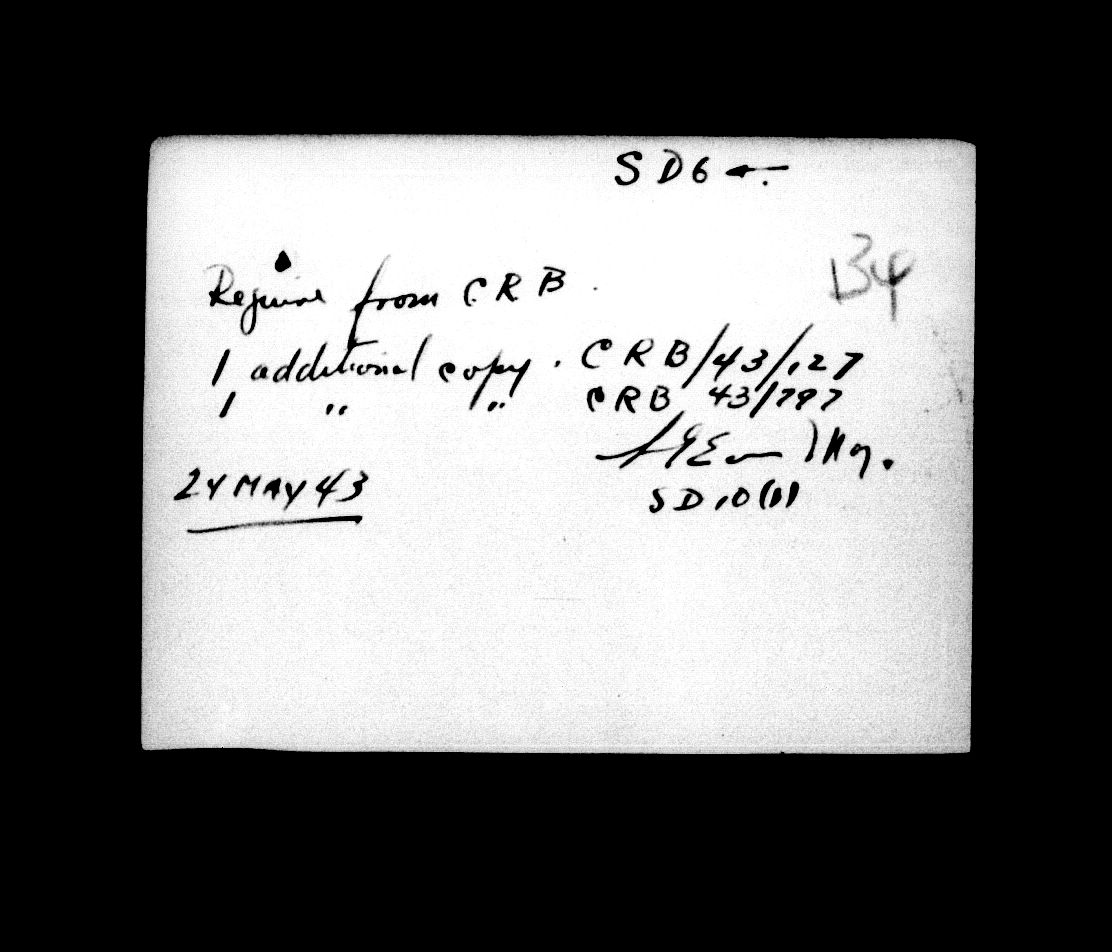 SD6 ←.
B4
Require from CRB.
1 additional copy. CRB/43/127
1 " " CRB 43/797
Maj.
SD10(1)
24 MAY 43